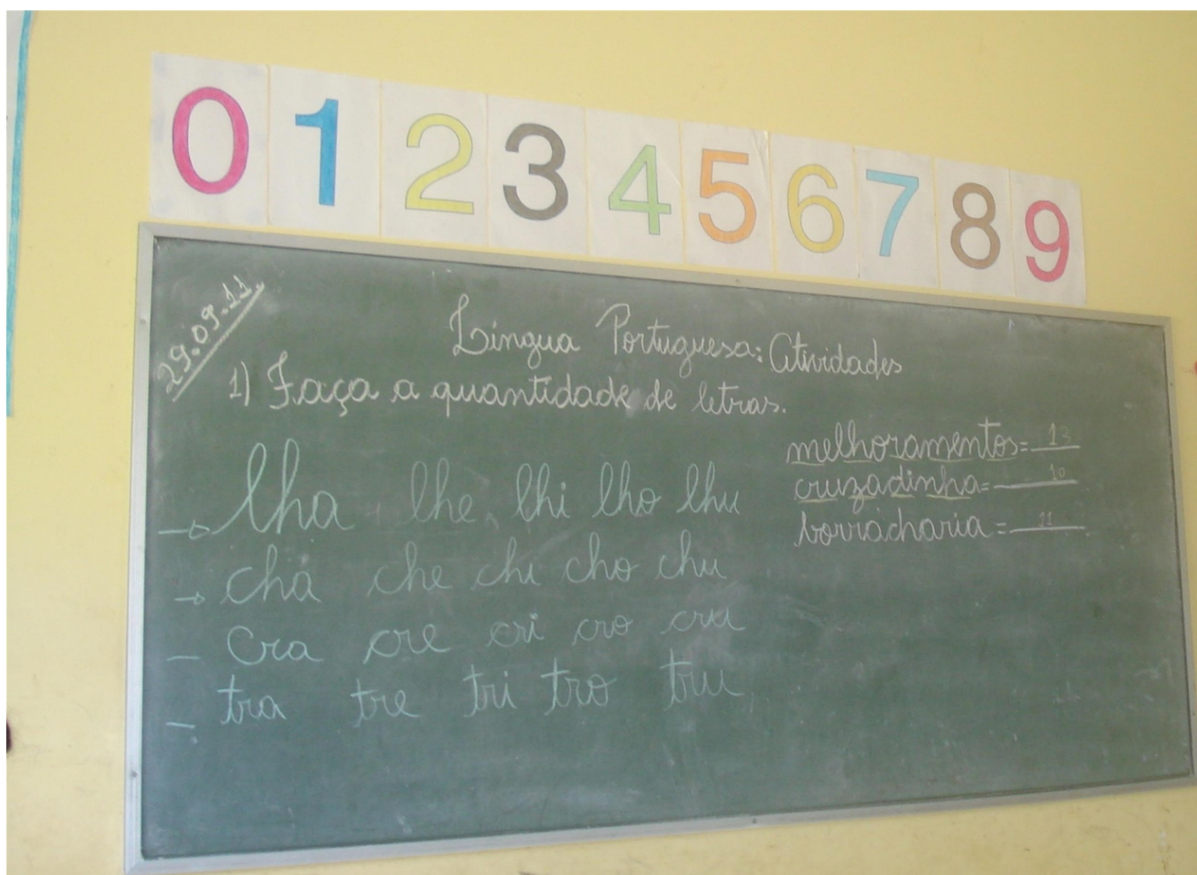 0 1 2 3 4 5 6 7 8 9
29.09.11
Língua Portuguesa: Atividades
1) Faça a quantidade de letras.
melhoramentos= 13
cruzadinha= 10
borracharia= 11
→ lha lhe lhi lho lhu
→ cha che chi cho chu
- Cra cre cri cro cru
- tra tre tri tro tru